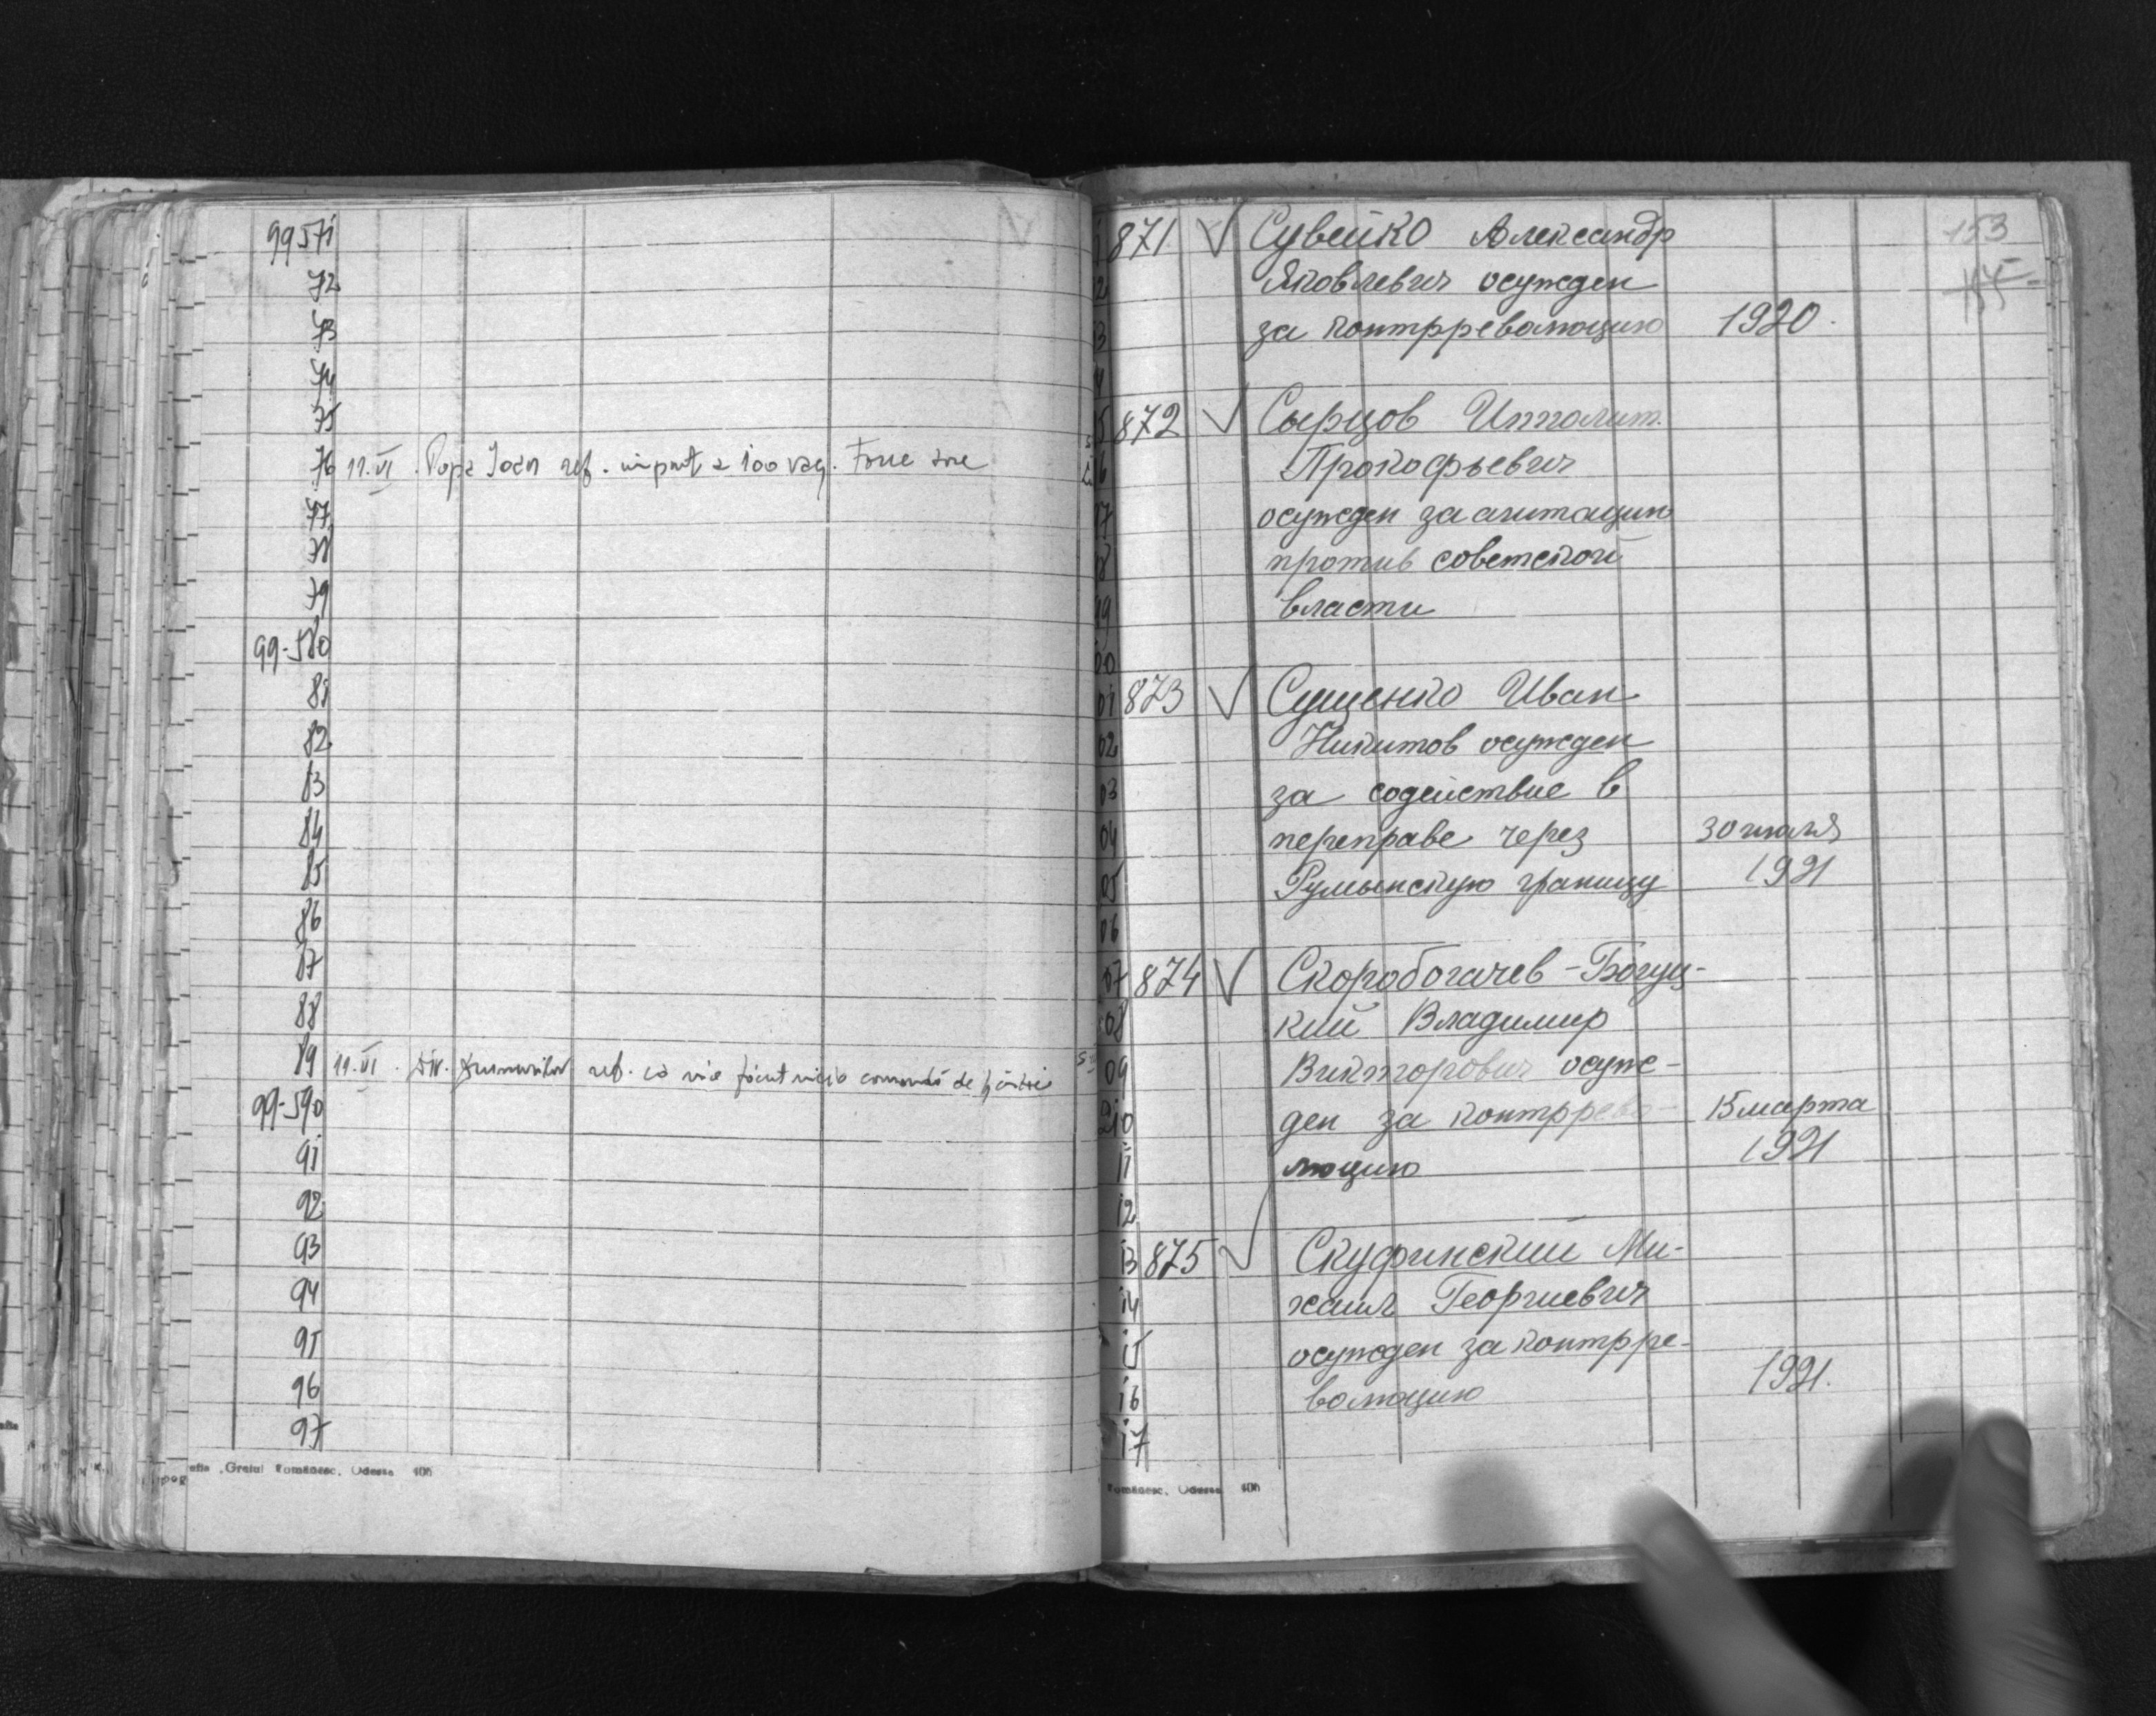 99571
72
73
74
75
76 11.VI. Popa Ioan ref. import a 100 vag.
77
78
79
99-580
81
82
83
84
85
86
87
88
89 11.VI. Div. ref. că comandă de
99-590
91
92
93
94
95
96
97
Românesc, Odessa
153
871 Сувейко Александр
Яковлевич осужден
за контрреволюцию 1920.
872 Сырцов Ипполит
Прокофьевич
осужден за агитацию
против советской
власти
00
01 873 Сущенко Иван
02 Никитов осужден
03 за содействие в
04 переправе через 30 июля
05 Румынскую границу 1921
06
07 874 Скоробогачев-Богуц-
08 кий Владимир
09 Викторович осуж-
210 ден за контррево- 15 марта
11 люцию 1921
12
13 875 Скуфинский Ми-
14 хаил Георгиевич
15 осужден за контрре-
16 волюцию 1921.
17
Românesc, Odessa